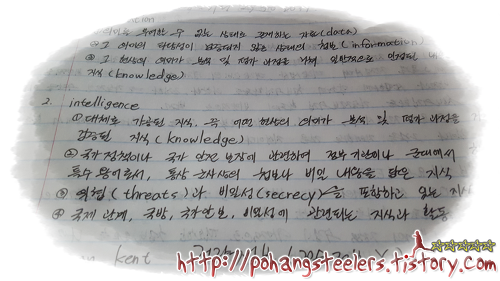 의미를 부여할 수 있는 상태로 존재하는 자료(data)
② 그 의미의 타당성이 검증되지 않은 상태의 첩보(information)
③ 그 현상의 의미가 분석 및 평가 과정을 거쳐 일반적으로 인정된
지식(knowledge)
2. intelligence
① 대체로 가공된 지식, 즉 어떤 현상의 의미가 분석 및 평가 과정을
검증된 지식(knowledge)
② 국가 정책이나 국가 안전 보장에 관련하여 정부 기관이나 군대에서
특수 용어로서, 통상 군사상의 첩보나 비밀 내용을 담은 지식
③ 위협(threats)과 비밀성(secrecy)을 포함하고 있는 지식
④ 국제 관계, 국방, 국가안보, 비밀성에 관련되는 지식과 활동
kent
http://pohangsteelers.tistory.com